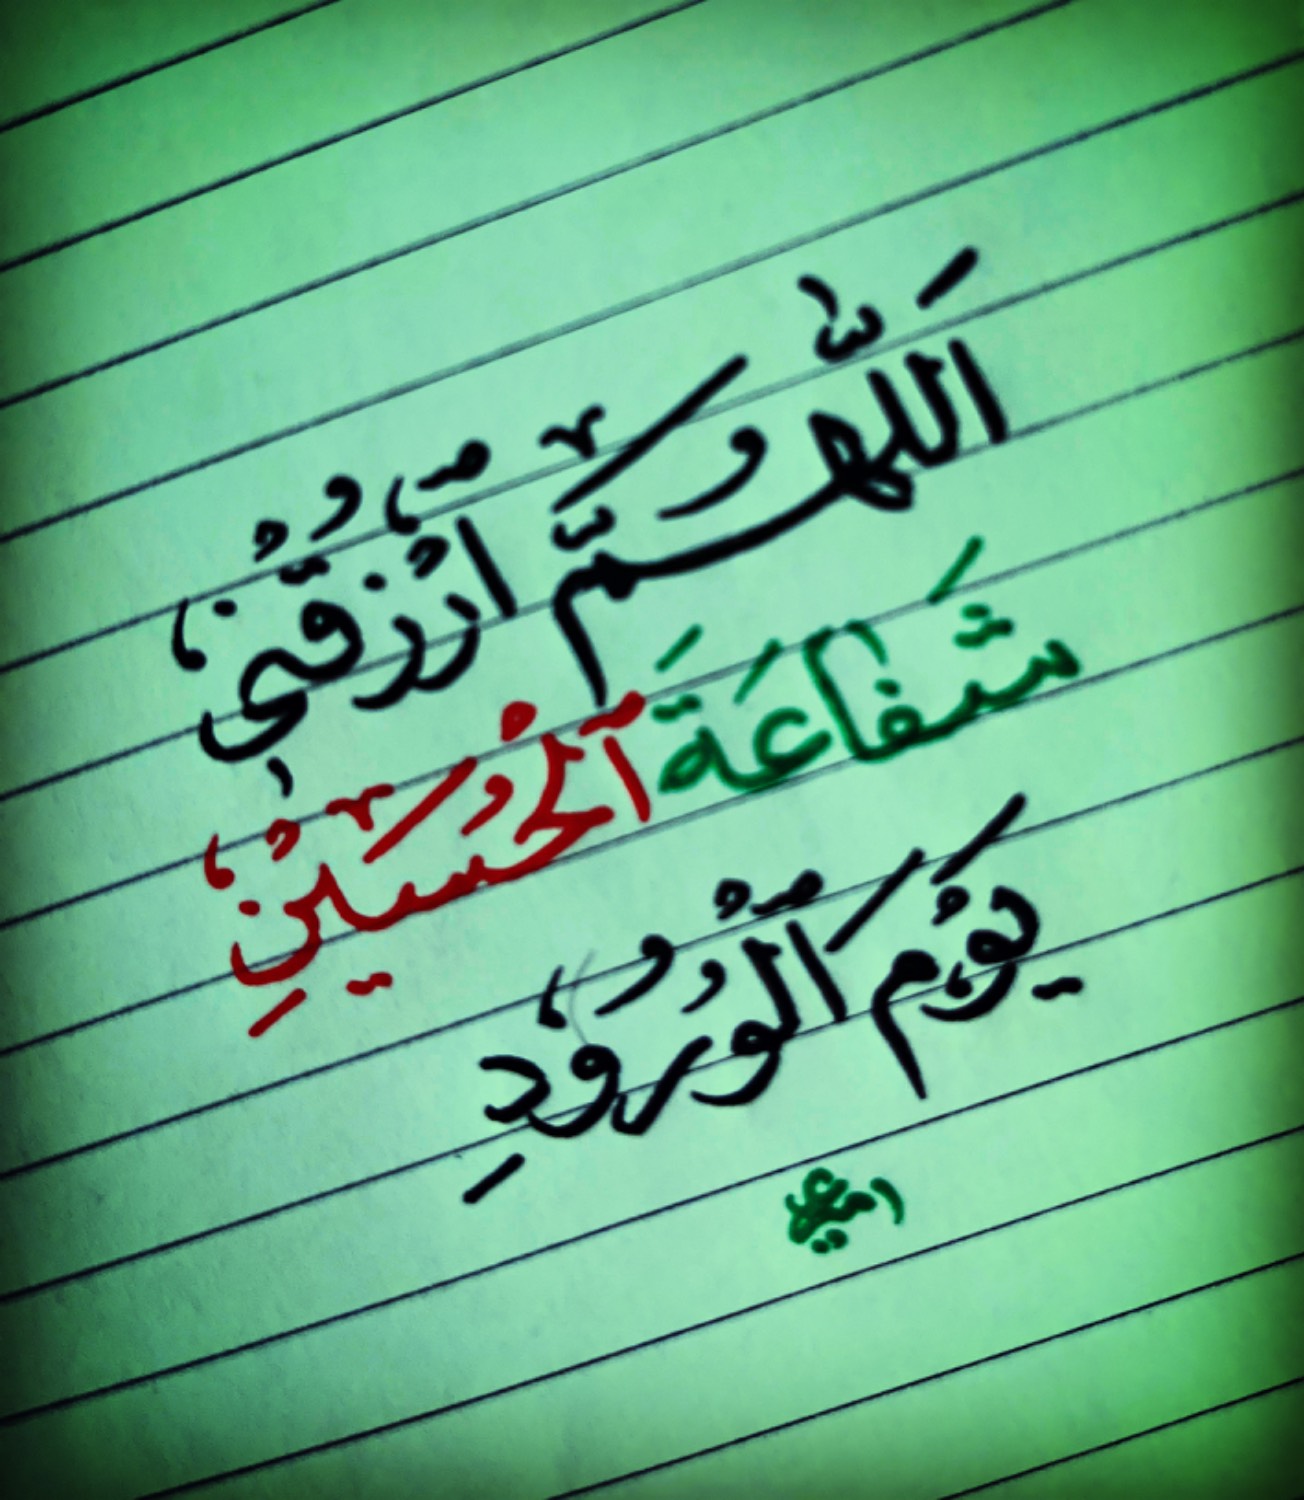 اَللّٰهُمَّ ارْزُقْني
شَفاعَةَ الْحُسَيْنِ
يَوْمَ الْوُرُودِ